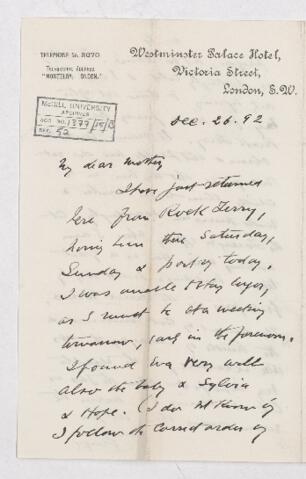 TELEPHONE No. 3070
TELEGRAPHIC ADDRESS
Westminster Palace Hotel,
Victoria Street,
London, S.W.
McGILL UNIVERSITY
ARCHIVES
ACC. NO. 1377
REF. 52
Dec. 26. 92
My dear Mother
I have just returned
here from Rock Ferry,
having been there Saturday,
Sunday & part of today.
I was unable to stay longer,
as I must be at a meeting
tomorrow, early in the forenoon.
I found Eva very well
also the baby & Sylvia
& Hope. (I do not know if
I follow the correct order of